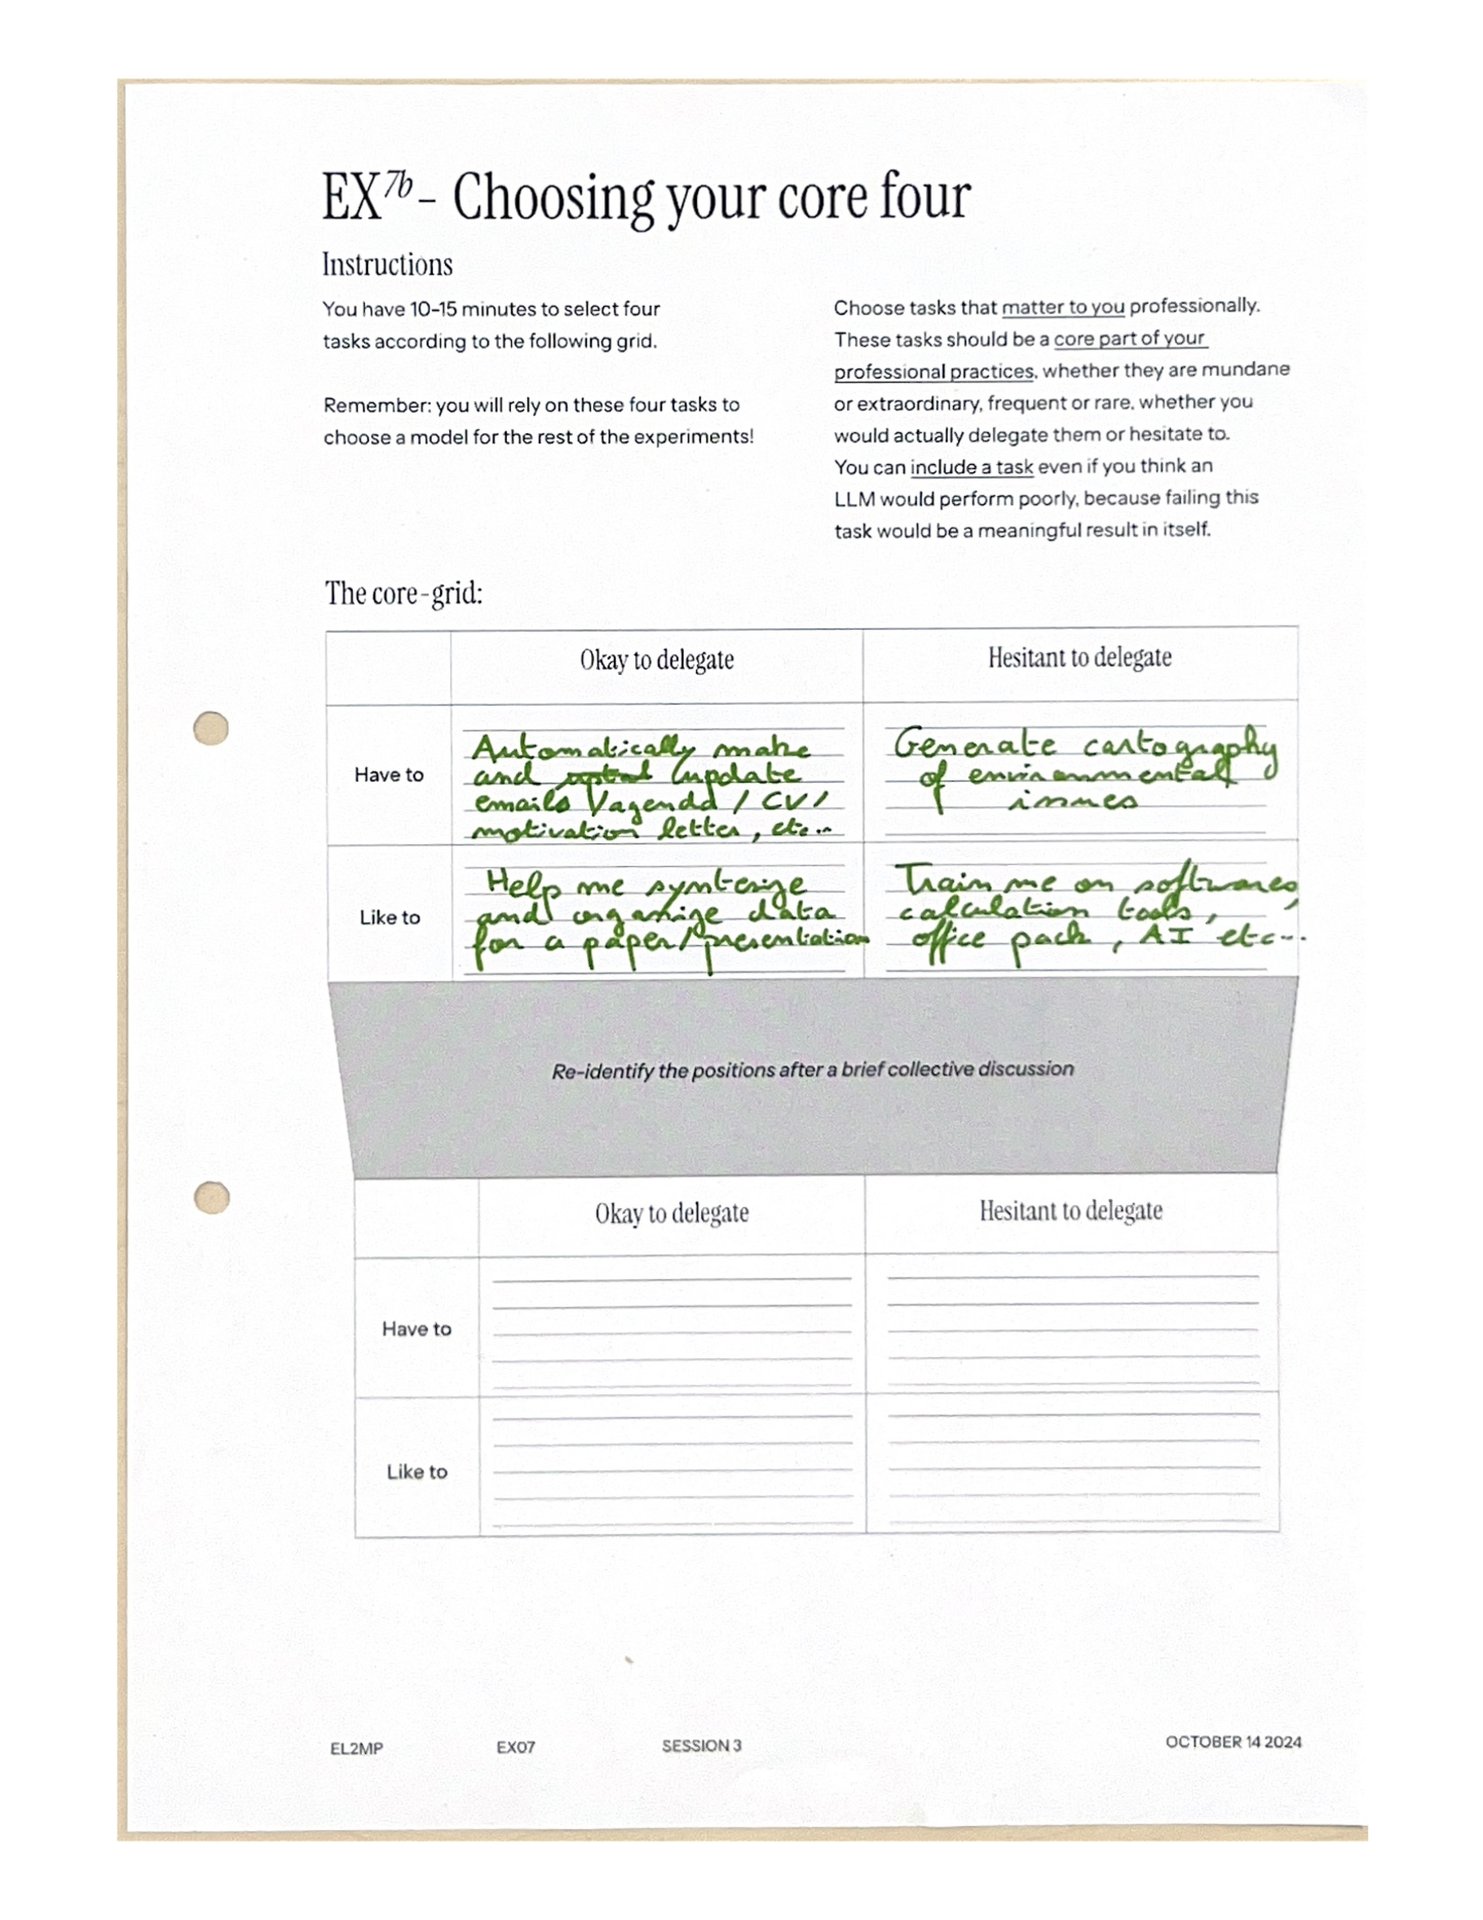 EX7b - Choosing your core four
Instructions
You have 10-15 minutes to select four
tasks according to the following grid.
Remember: you will rely on these four tasks to
choose a model for the rest of the experiments!
Choose tasks that matter to you professionally.
These tasks should be a core part of your
professional practices, whether they are mundane
or extraordinary, frequent or rare, whether you
would actually delegate them or hesitate to.
You can include a task even if you think an
LLM would perform poorly, because failing this
task would be a meaningful result in itself.
The core-grid:
Okay to delegate
Hesitant to delegate
Have to
Automatically make
and update
emails / agenda / CV /
motivation letter, etc...
Generate cartography
of environmental
issues
Like to
Help me synterize
and organize data
for a paper/presentation
Train me on softwares,
calculation tools,
office pack, AI etc...
Re-identify the positions after a brief collective discussion
Okay to delegate
Hesitant to delegate
Have to
Like to
EL2MP
EX07
SESSION 3
OCTOBER 14 2024